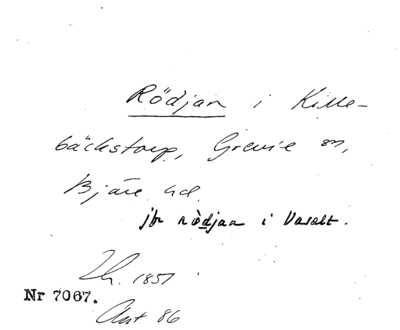 Rödjan i Kille-
bäckstorp, Grevie sn,
Bjäre hd
jfr rödjan i Vasalt.
1857
Nr 7067.
86